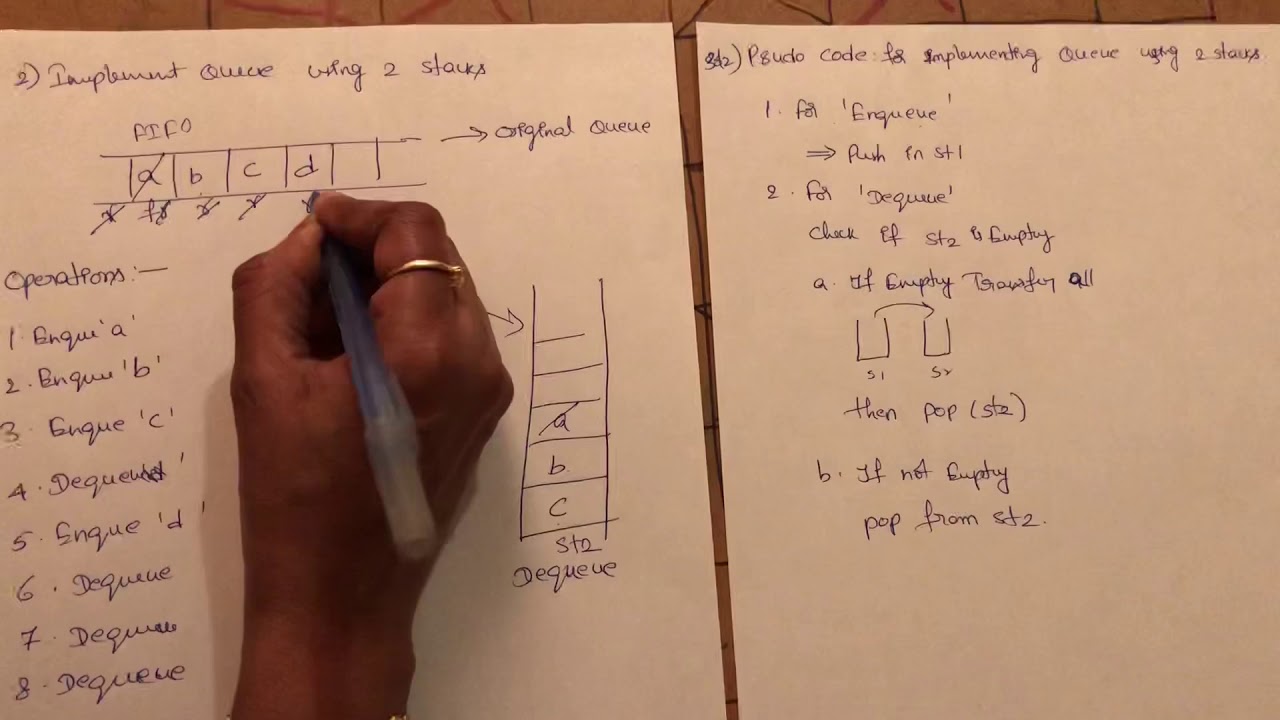 2) Implement Queue using 2 stacks
FIFO
→ original Queue
a b c d
Operations:-
1. Enque 'a'
2. Enque 'b'
3. Enque 'c'
4. Dequeue
5. Enque 'd'
6. Dequeue
7. Dequeue
8. Dequeue
a
b
c
st2
Dequeue
Psudo code: for Implementing Queue using 2 stacks.
1. for 'Enqueue'
⇒ Push in st1
2. for 'Dequeue'
Check if st2 is Empty
a. If Empty Transfer all
S1 S2
then pop (st2)
b. If not Empty
pop from st2.